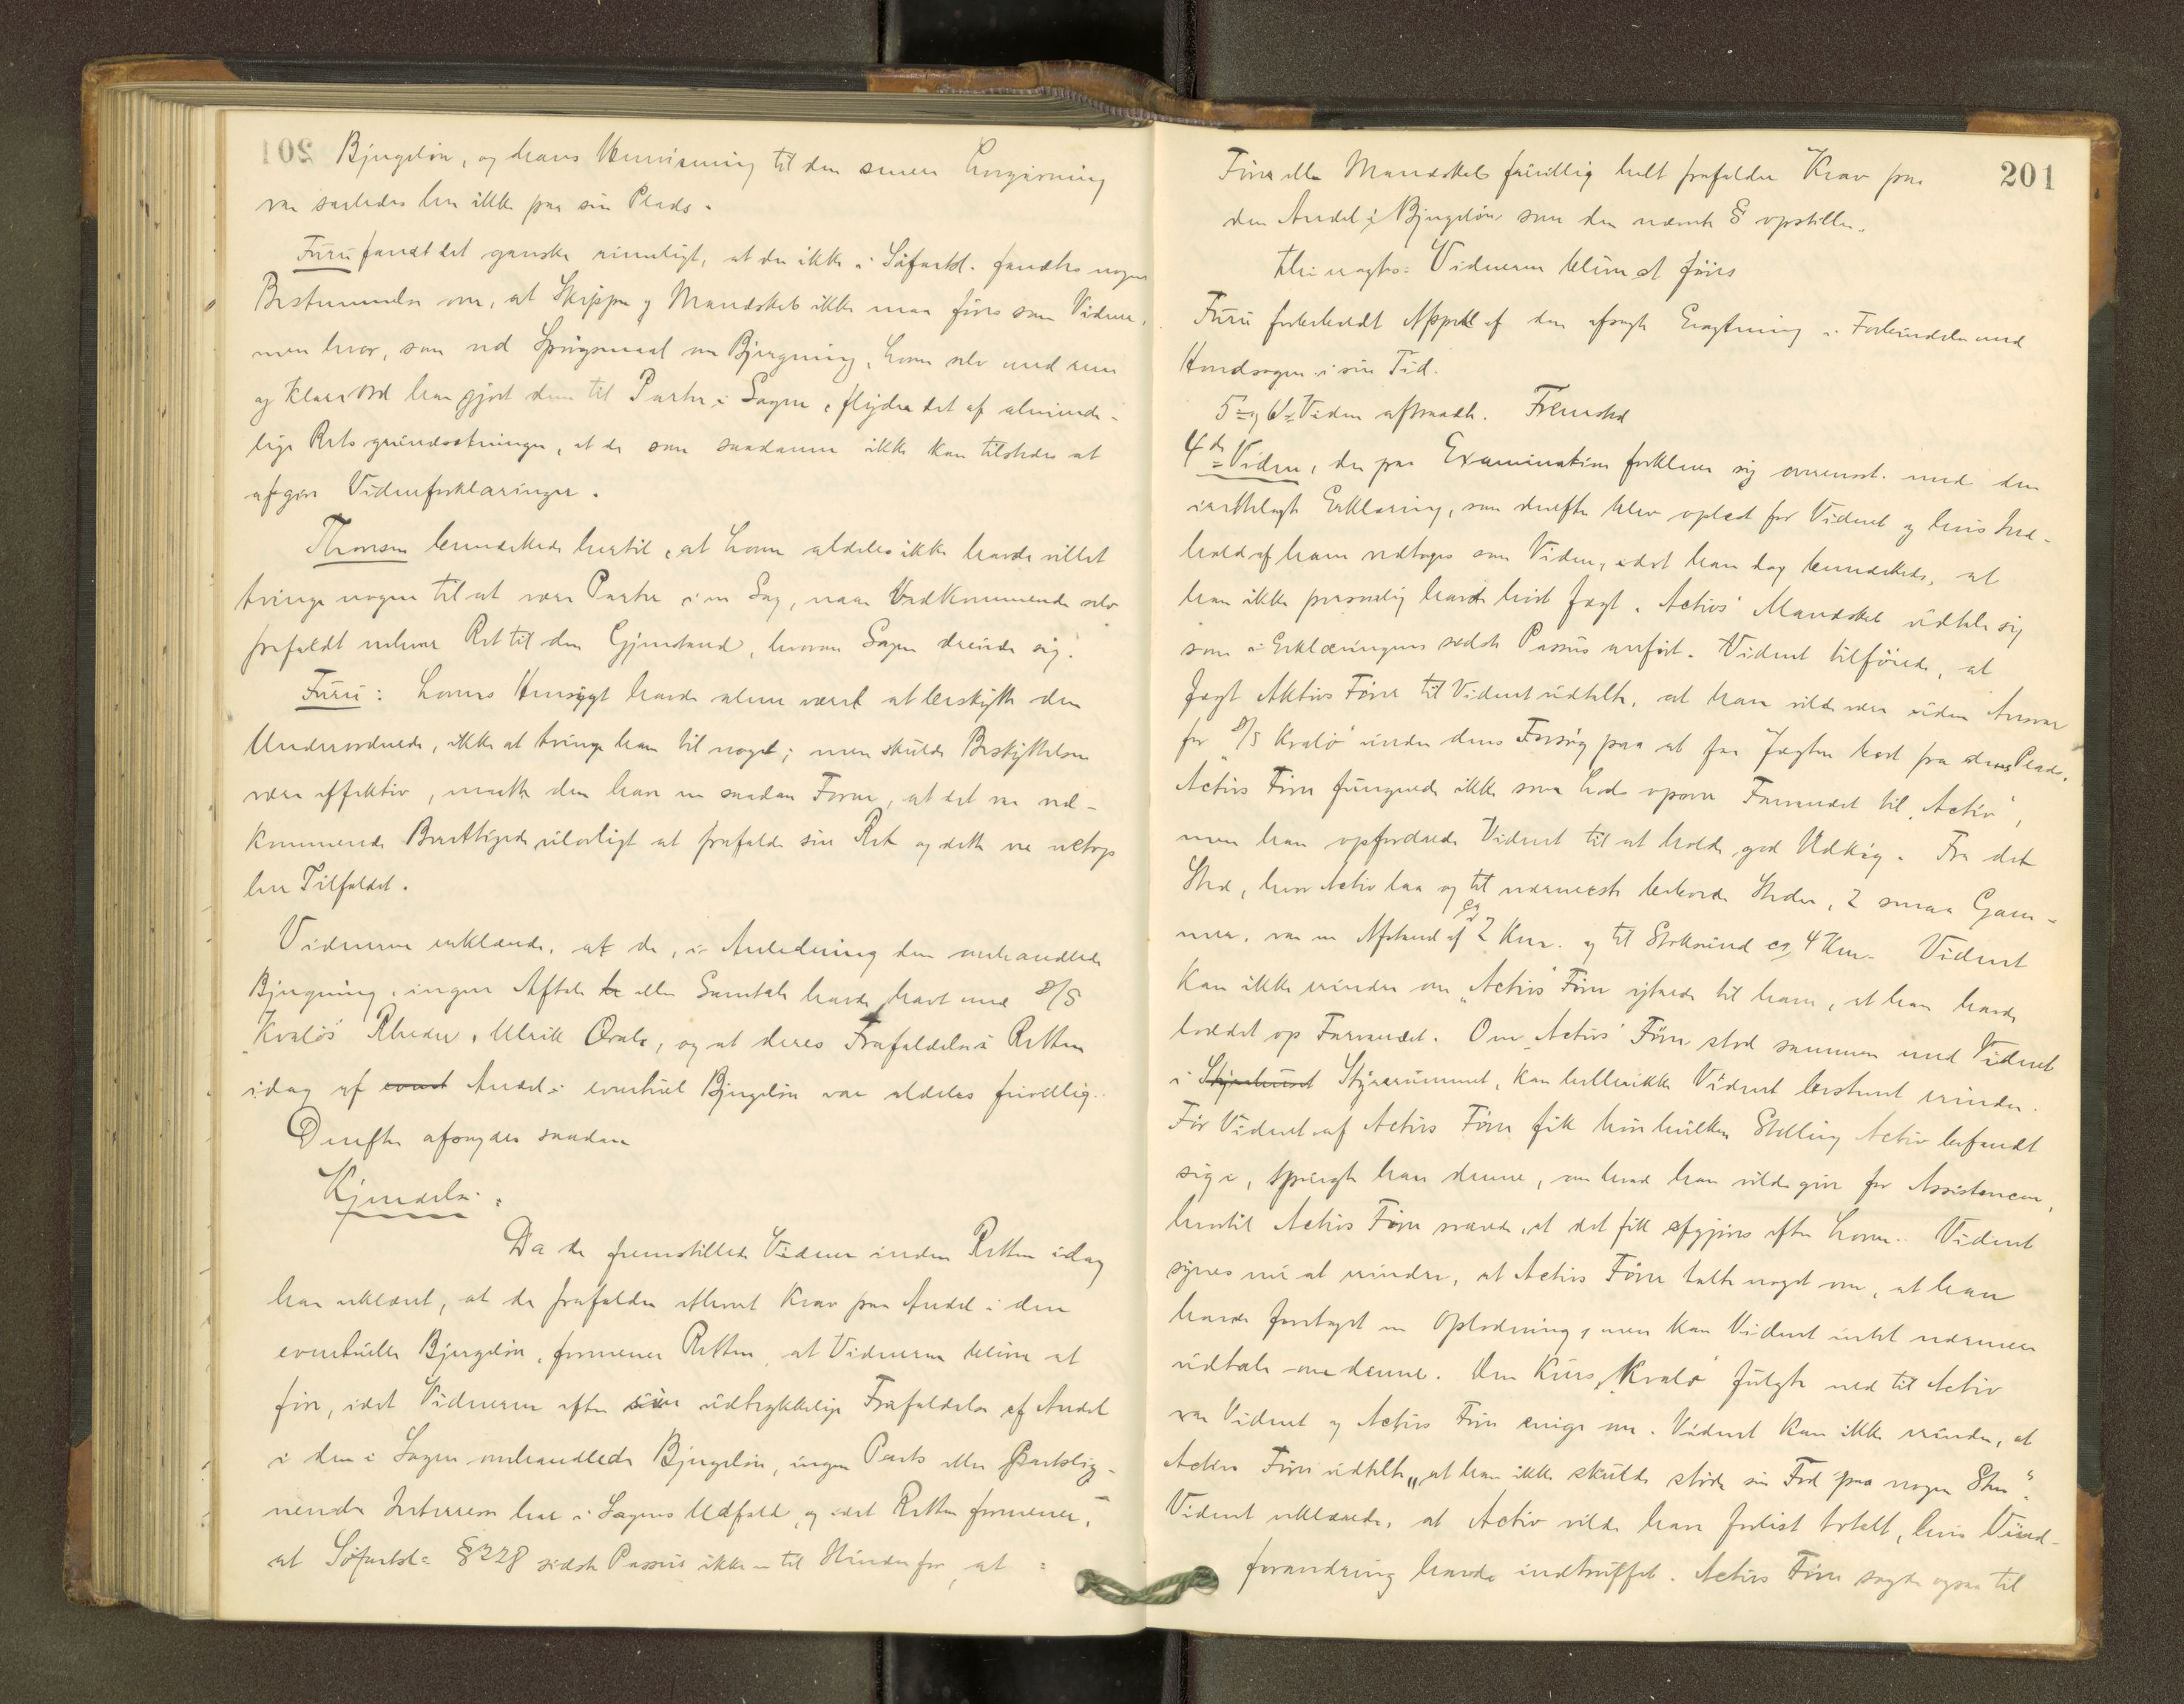 Bjergeløn, og hans Henvisning til den senere Lovgivning
var saaledes her ikke paa sin Plads.
Furu fandt det ganske rimeligt, at der ikke i Søfartsl. fandtes nogen
Bestemmelse om, at Skipper og Mandskab ikke maa føres som Vidner,
men hvor, som ved Spørgsmaal om Bjergning, Loven selv med rene
og klare Ord har gjort dem til Parter i Sagen, flyder det af alminde-
lige Retsgrundsætninger, at de som saadanne ikke kan tilstedes at
afgive Vidneforklaringer.
Thomsen bemærkede hertil, at Loven aldeles ikke havde villet
tvinge nogen til at være Parter i en Sag, naar Vedkommende selv
frafaldt enhver Ret til den Gjenstand, hvorom Sagen dreiede sig.
Furu: Lovens Hensigt havde alene været at beskytte den
Underordnede, ikke at tvinge ham til noget; men skulde Beskyttelsen
være effektiv, maatte den have en saadan Form, at det var ved-
kommende Berettigede ulovligt at frafalde sin Ret og dette var netop
her Tilfældet.
Vidnerne erklærede, at de, i Anledning den omhandlede
Bjergning, ingen Aftale eller Samtale havde havt med D/S
"Kvaløs" Rheder, Ulrik Qvale, og at deres Frafaldelse i Retten
idag af Andel i eventuel Bjergeløn var aldeles frivillig.
Derefter afsagdes saadan
Kjendelse:
Da de fremstillede Vidner inden Retten idag
har erklæret, at de frafalder ethvert Krav paa Andel i den
eventuelle Bjergeløn, formener Retten, at Vidnerne bliver at
føre, idet Vidnerne efter sin udtrykkelige Frafaldelse af Andel
i den i Sagen omhandlede Bjergeløn, ingen Parts eller Partslig-
nende Interesse har i Sagens Udfald, og idet Retten formener,
at Søfartsl: §228 sidste Passus ikke er til Hinder for, at
201
Fører eller Mandskab frivillig helt frafalder Krav paa
den Andel i Bjergeløn som den nævnte § opstiller.
Thi eragtes: Vidnerne bliver at føres
Furu forbeholdt Appel af den afsagte Eragtning i Forbindelse med
Hovedsagen i sin Tid.
5te og 6te Vidne aftraadte. Fremstod
4de Vidne, der paa Examination forklarer sig overensst. med den
irettelagte Erklæring, som derefter blev oplæst for Vidnet og hvis Ind-
hold af ham vedtoges som Vidne, idet han dog bemærkede, at
han ikke personlig havde hørt Jagt. Activs' Mandskab udtale sig
som i Erklæringens sidste Passus anført. Vidnet tilføiede, at
Jagt Aktivs Fører til Vidnet udtalte, at han vilde være uden Ansvar
for "D/S Kvalø" under dens Forsøg paa at faa Jagten bort fra dens Plads.
Activs Fører fungerede ikke som Lods opover Farvandet til "Activ",
men han opfordrede Vidnet til at holde god Udkig. Fra det
Sted, hvor Activ laa og til nærmeste beboede Steder, 2 smaa Gam-
mer, var en Afstand af ca 2 Km. og til Stoksund ca 4 Km. Vidnet
kan ikke erindre om "Activs" Fører ytrede til ham, at han havde
loddet op Farvandet. Om "Activs" Fører stod sammen med Vidnet
i Styrehuset Styrerummet, kan hellerikke Vidnet bestemt erindre.
Før Vidnet af Activs Fører fik høre hvilken Stilling Activ befandt
sig i, spurgte han denne, om hvad han vilde give for Assistancen,
hvortil Activs Fører svarede, at det fik afgjøres efter Loven. Vidnet
synes nu at erindre, at Activs Fører talte noget om, at han
havde foretaget en Oplodning, men kan Vidnet intet nærmere
udtale om denne. Den Kurs, "Kvalø" fulgte ned til Activ
var Vidnet og Activs Fører enige om. Vidnet kan ikke erindre, at
Activs Fører udtalte, "at han ikke skulde støde sin Fod paa nogen Sten".
Vidnet erklærede, at Activ vilde have forlist totalt, hvis Vind-
forandring havde indtruffet. Activs Fører sagde ogsaa til